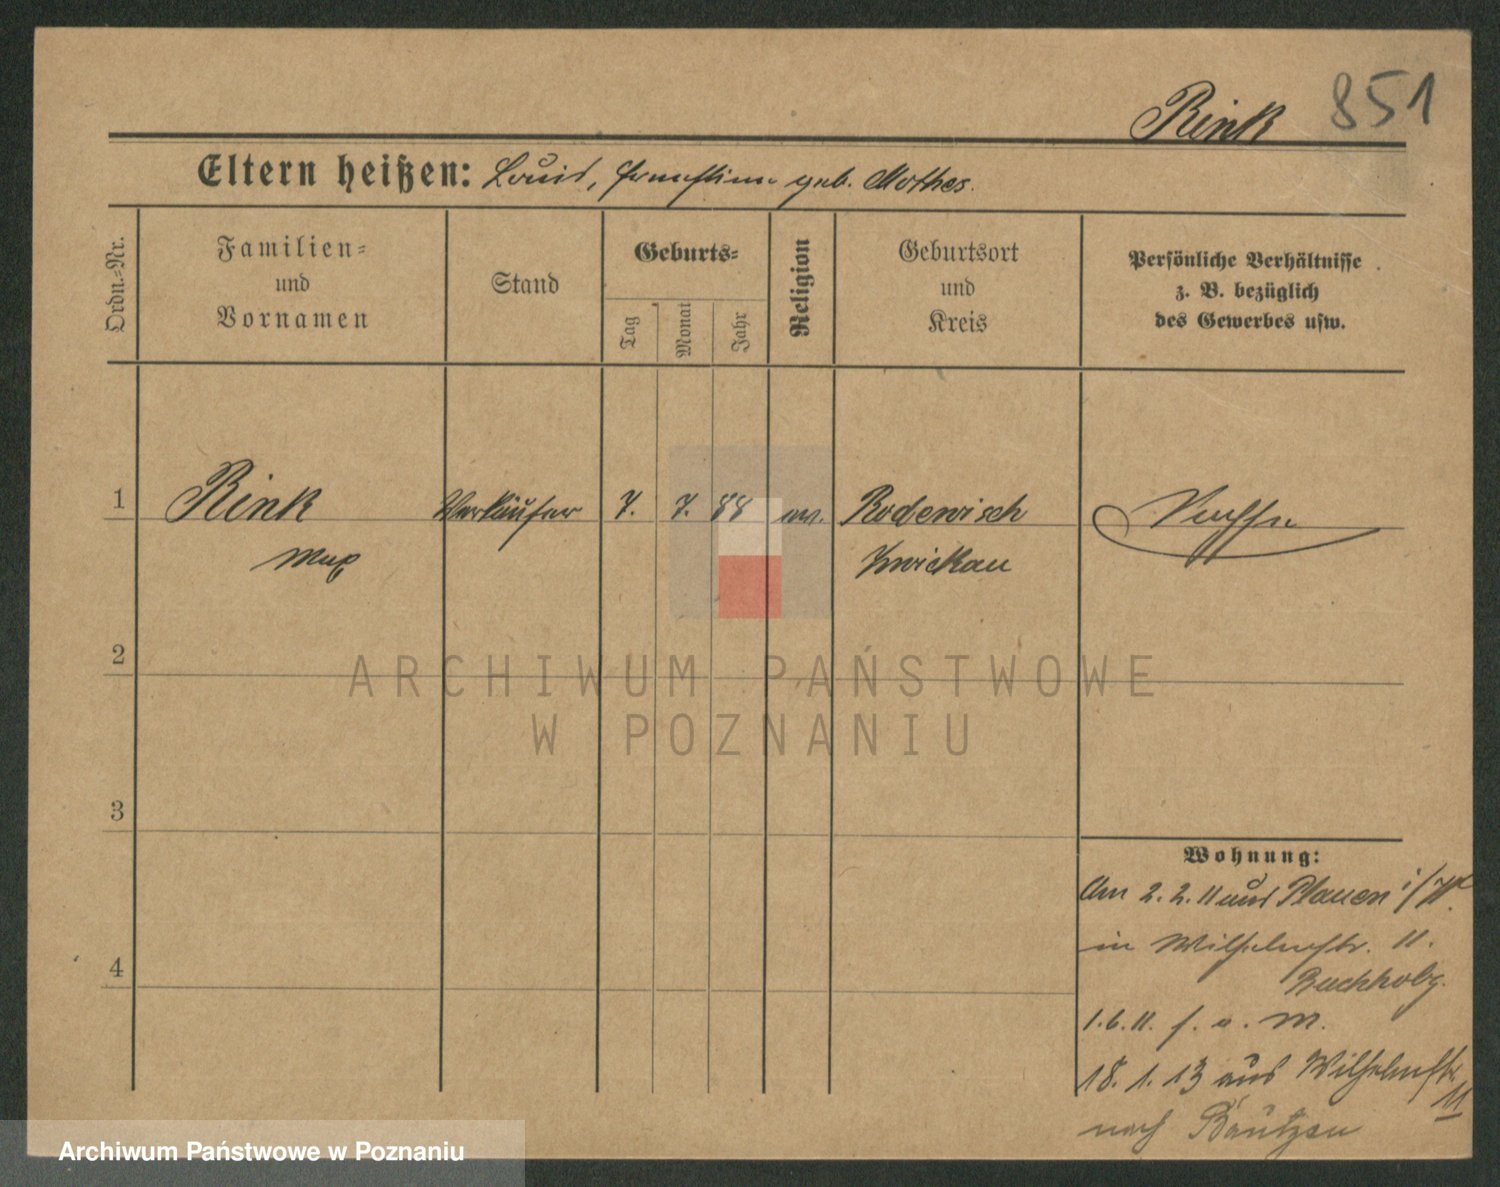 Rink 851
Eltern heißen: Louis, Ernestine geb. Mothes.
Ordn.-Nr.
Familien-
und
Vornamen
Stand
Geburts-
Tag
Monat
Jahr
Religion
Geburtsort
und
Kreis
Persönliche Verhältnisse
z. B. bezüglich
des Gewerbes usw.
1 Rink Verkäufer 7. 7. 88 ev. Rodewisch Sachse
Max Zwickau
2
3
4
Wohnung:
Am 2.2.11 aus Plauen i/V.
in Wilhelmstr. 11.
Buchholz.
1.6.11. f. o. M.
18.1.13 aus Wilhelmstr.
11
nach Bautzen
ARCHIWUM PAŃSTWOWE
W POZNANIU
Archiwum Państwowe w Poznaniu